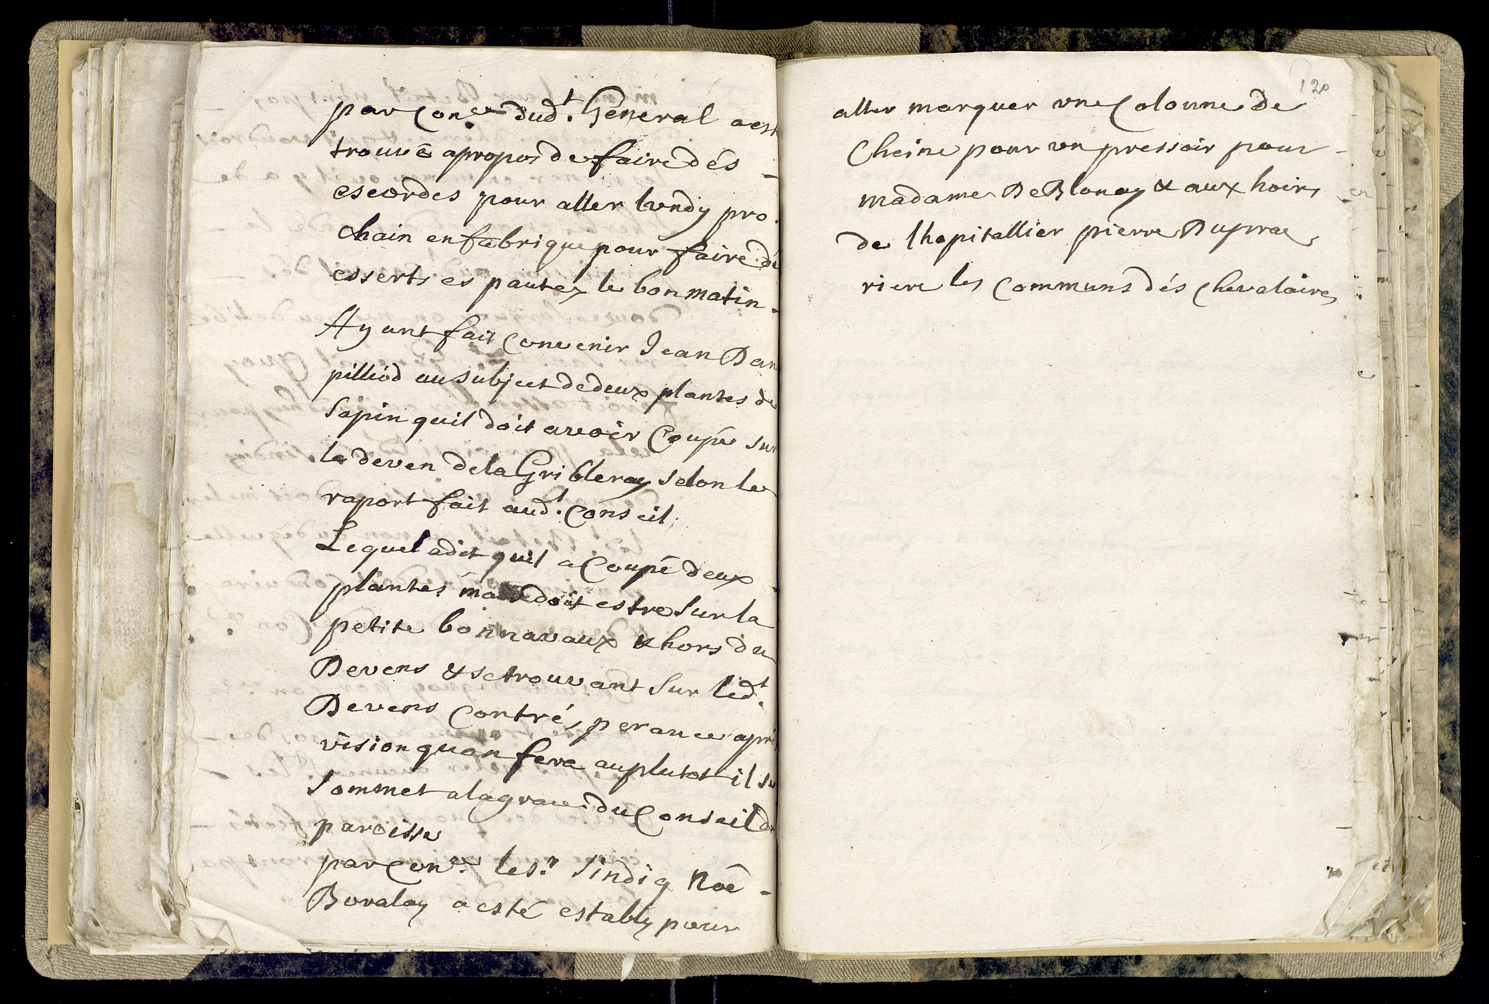 par Con.ce dud.t General a est
trouvé apropos de faire dés
escordes pour aller lundy pro-
chain en fabrique pour faire dé
esserts es pautex le bon matin
Ayant fait convenir Jean Dan
pilliód au subject de deux plantes de
Sapin quil doit avoir Coupé sur
le deven de la Gribleray selon le
raport fait aud.t Conseil.
Lequel a dit quil a Coupé deux
plantes doit estre sur la
petite bonnavaux & hors du
Devens & se trouvant sur led.t
Devens contre sperance apré
vision quon fera au plutot il se
Sommet a la grace du Conseil de
paroisse
par Con.ce le s.r Sindiq Noé
Bovalay a esté estably pour
120
aller marquer une Colonne de
Cheine pour un pressoir pour
madame De Blonay & aux hoirs
de lhopitallier pierre Dupraz
riere les Communs dés Chevalaires